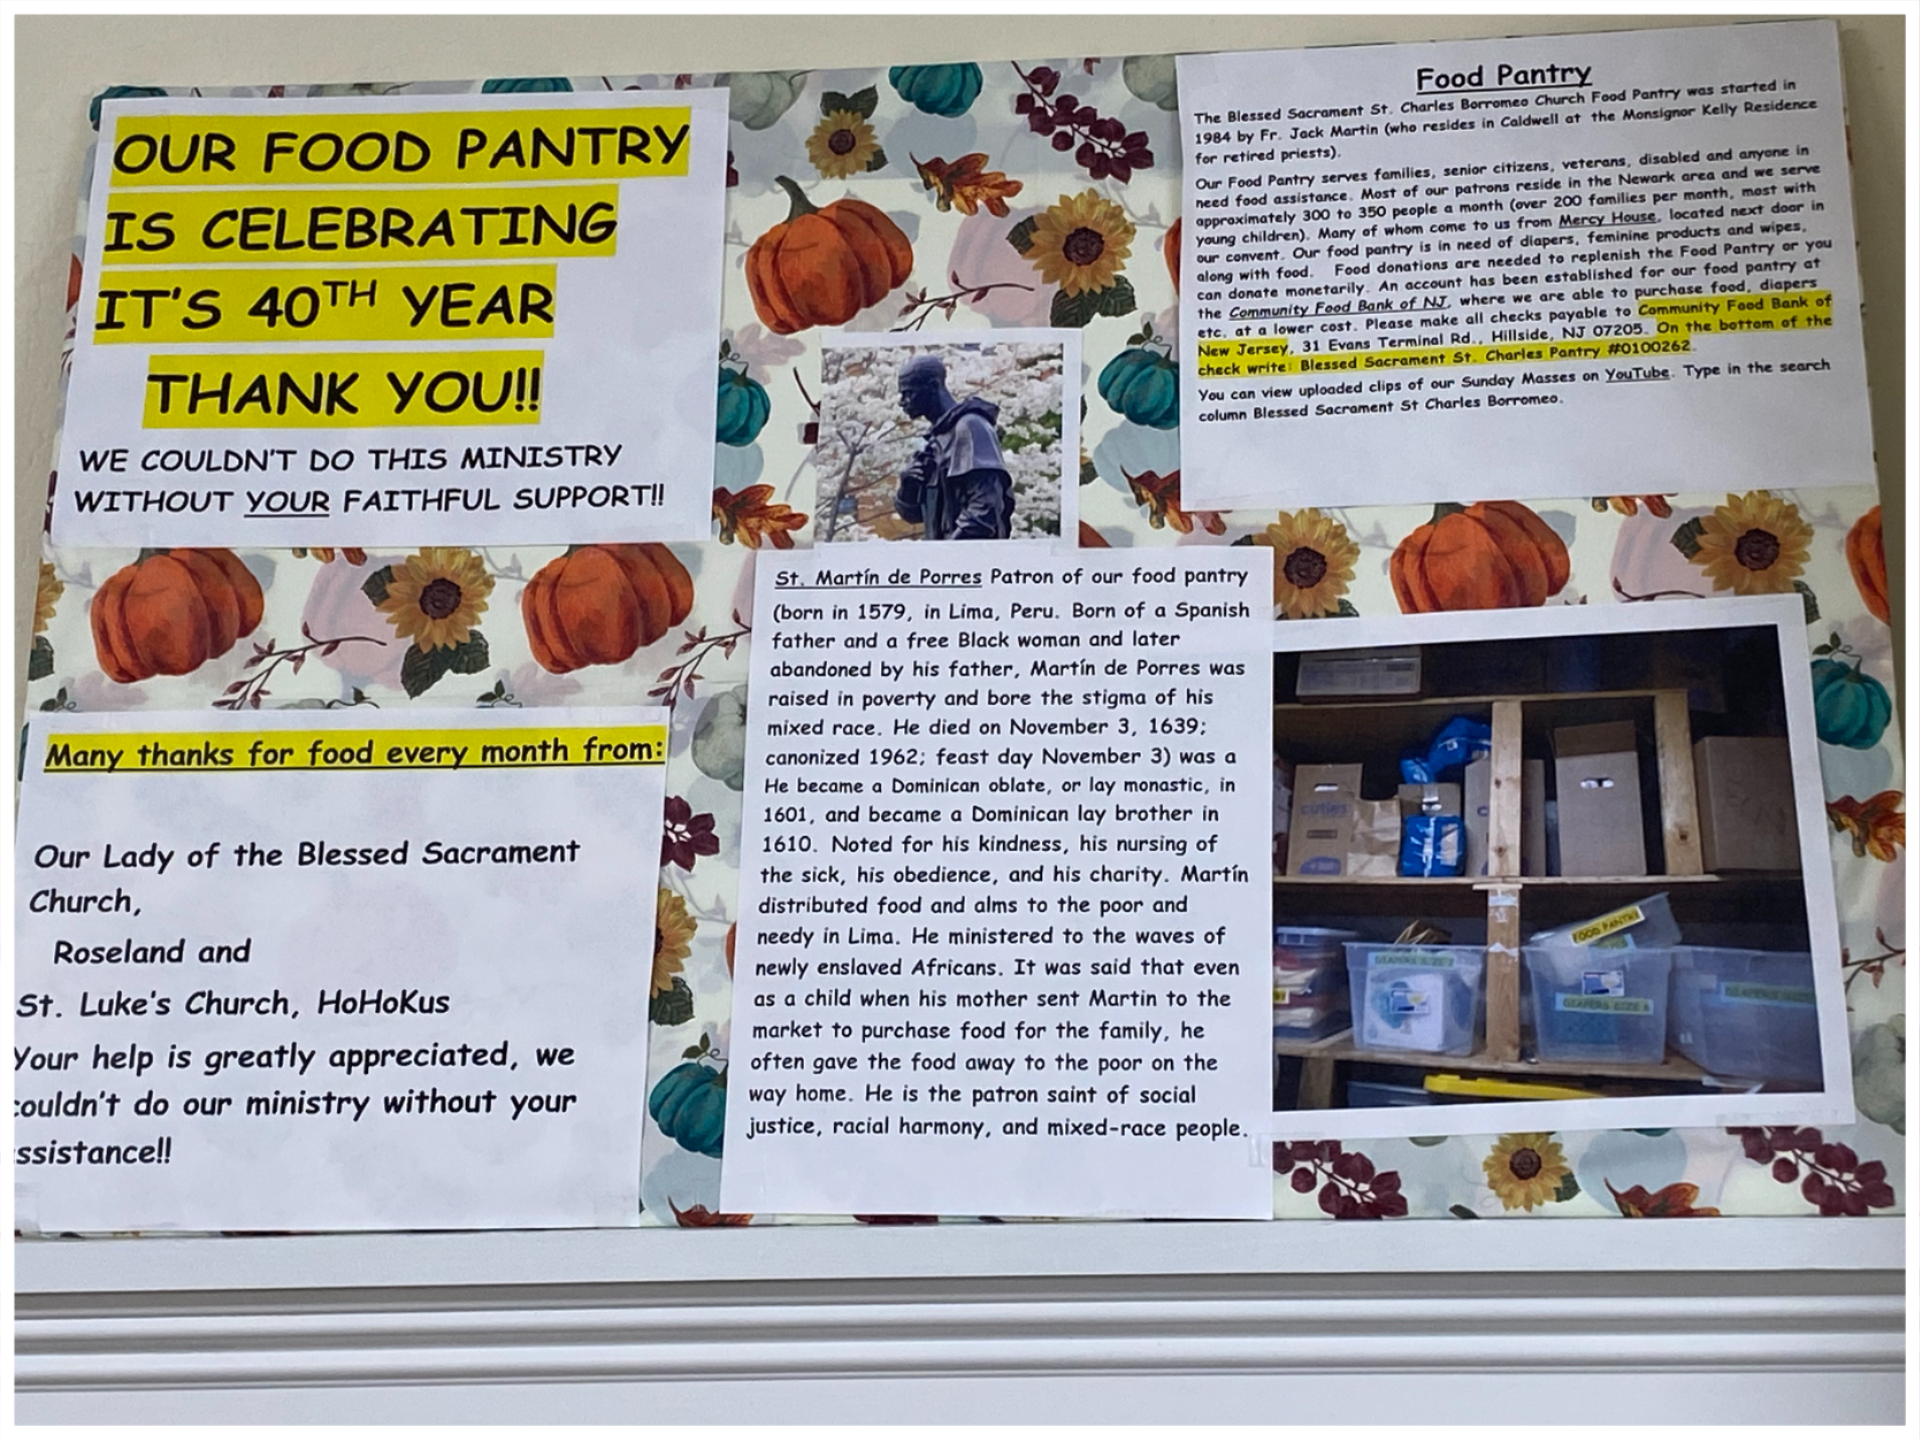 OUR FOOD PANTRY
IS CELEBRATING
IT'S 40TH YEAR
THANK YOU!!
WE COULDN'T DO THIS MINISTRY
WITHOUT YOUR FAITHFUL SUPPORT!!
Many thanks for food every month from:
Our Lady of the Blessed Sacrament
Church,
Roseland and
St. Luke's Church, HoHoKus
Your help is greatly appreciated, we
couldn't do our ministry without your
ssistance!!
St. Martín de Porres Patron of our food pantry
(born in 1579, in Lima, Peru. Born of a Spanish
father and a free Black woman and later
abandoned by his father, Martín de Porres was
raised in poverty and bore the stigma of his
mixed race. He died on November 3, 1639;
canonized 1962; feast day November 3) was a
He became a Dominican oblate, or lay monastic, in
1601, and became a Dominican lay brother in
1610. Noted for his kindness, his nursing of
the sick, his obedience, and his charity. Martín
distributed food and alms to the poor and
needy in Lima. He ministered to the waves of
newly enslaved Africans. It was said that even
as a child when his mother sent Martin to the
market to purchase food for the family, he
often gave the food away to the poor on the
way home. He is the patron saint of social
justice, racial harmony, and mixed-race people.
Food Pantry
The Blessed Sacrament St. Charles Borromeo Church Food Pantry was started in
1984 by Fr. Jack Martin (who resides in Caldwell at the Monsignor Kelly Residence
for retired priests).
Our Food Pantry serves families, senior citizens, veterans, disabled and anyone in
need food assistance. Most of our patrons reside in the Newark area and we serve
approximately 300 to 350 people a month (over 200 families per month, most with
young children). Many of whom come to us from Mercy House, located next door in
our convent. Our food pantry is in need of diapers, feminine products and wipes,
along with food. Food donations are needed to replenish the Food Pantry or you
can donate monetarily. An account has been established for our food pantry at
the Community Food Bank of NJ, where we are able to purchase food, diapers
etc. at a lower cost. Please make all checks payable to Community Food Bank of
New Jersey, 31 Evans Terminal Rd., Hillside, NJ 07205. On the bottom of the
check write: Blessed Sacrament St. Charles Pantry #0100262.
You can view uploaded clips of our Sunday Masses on YouTube. Type in the search
column Blessed Sacrament St Charles Borromeo.
cuties
FOOD PANTRY
DIAPERS SIZE 2
DIAPERS SIZE 6
DIAPERS SIZE